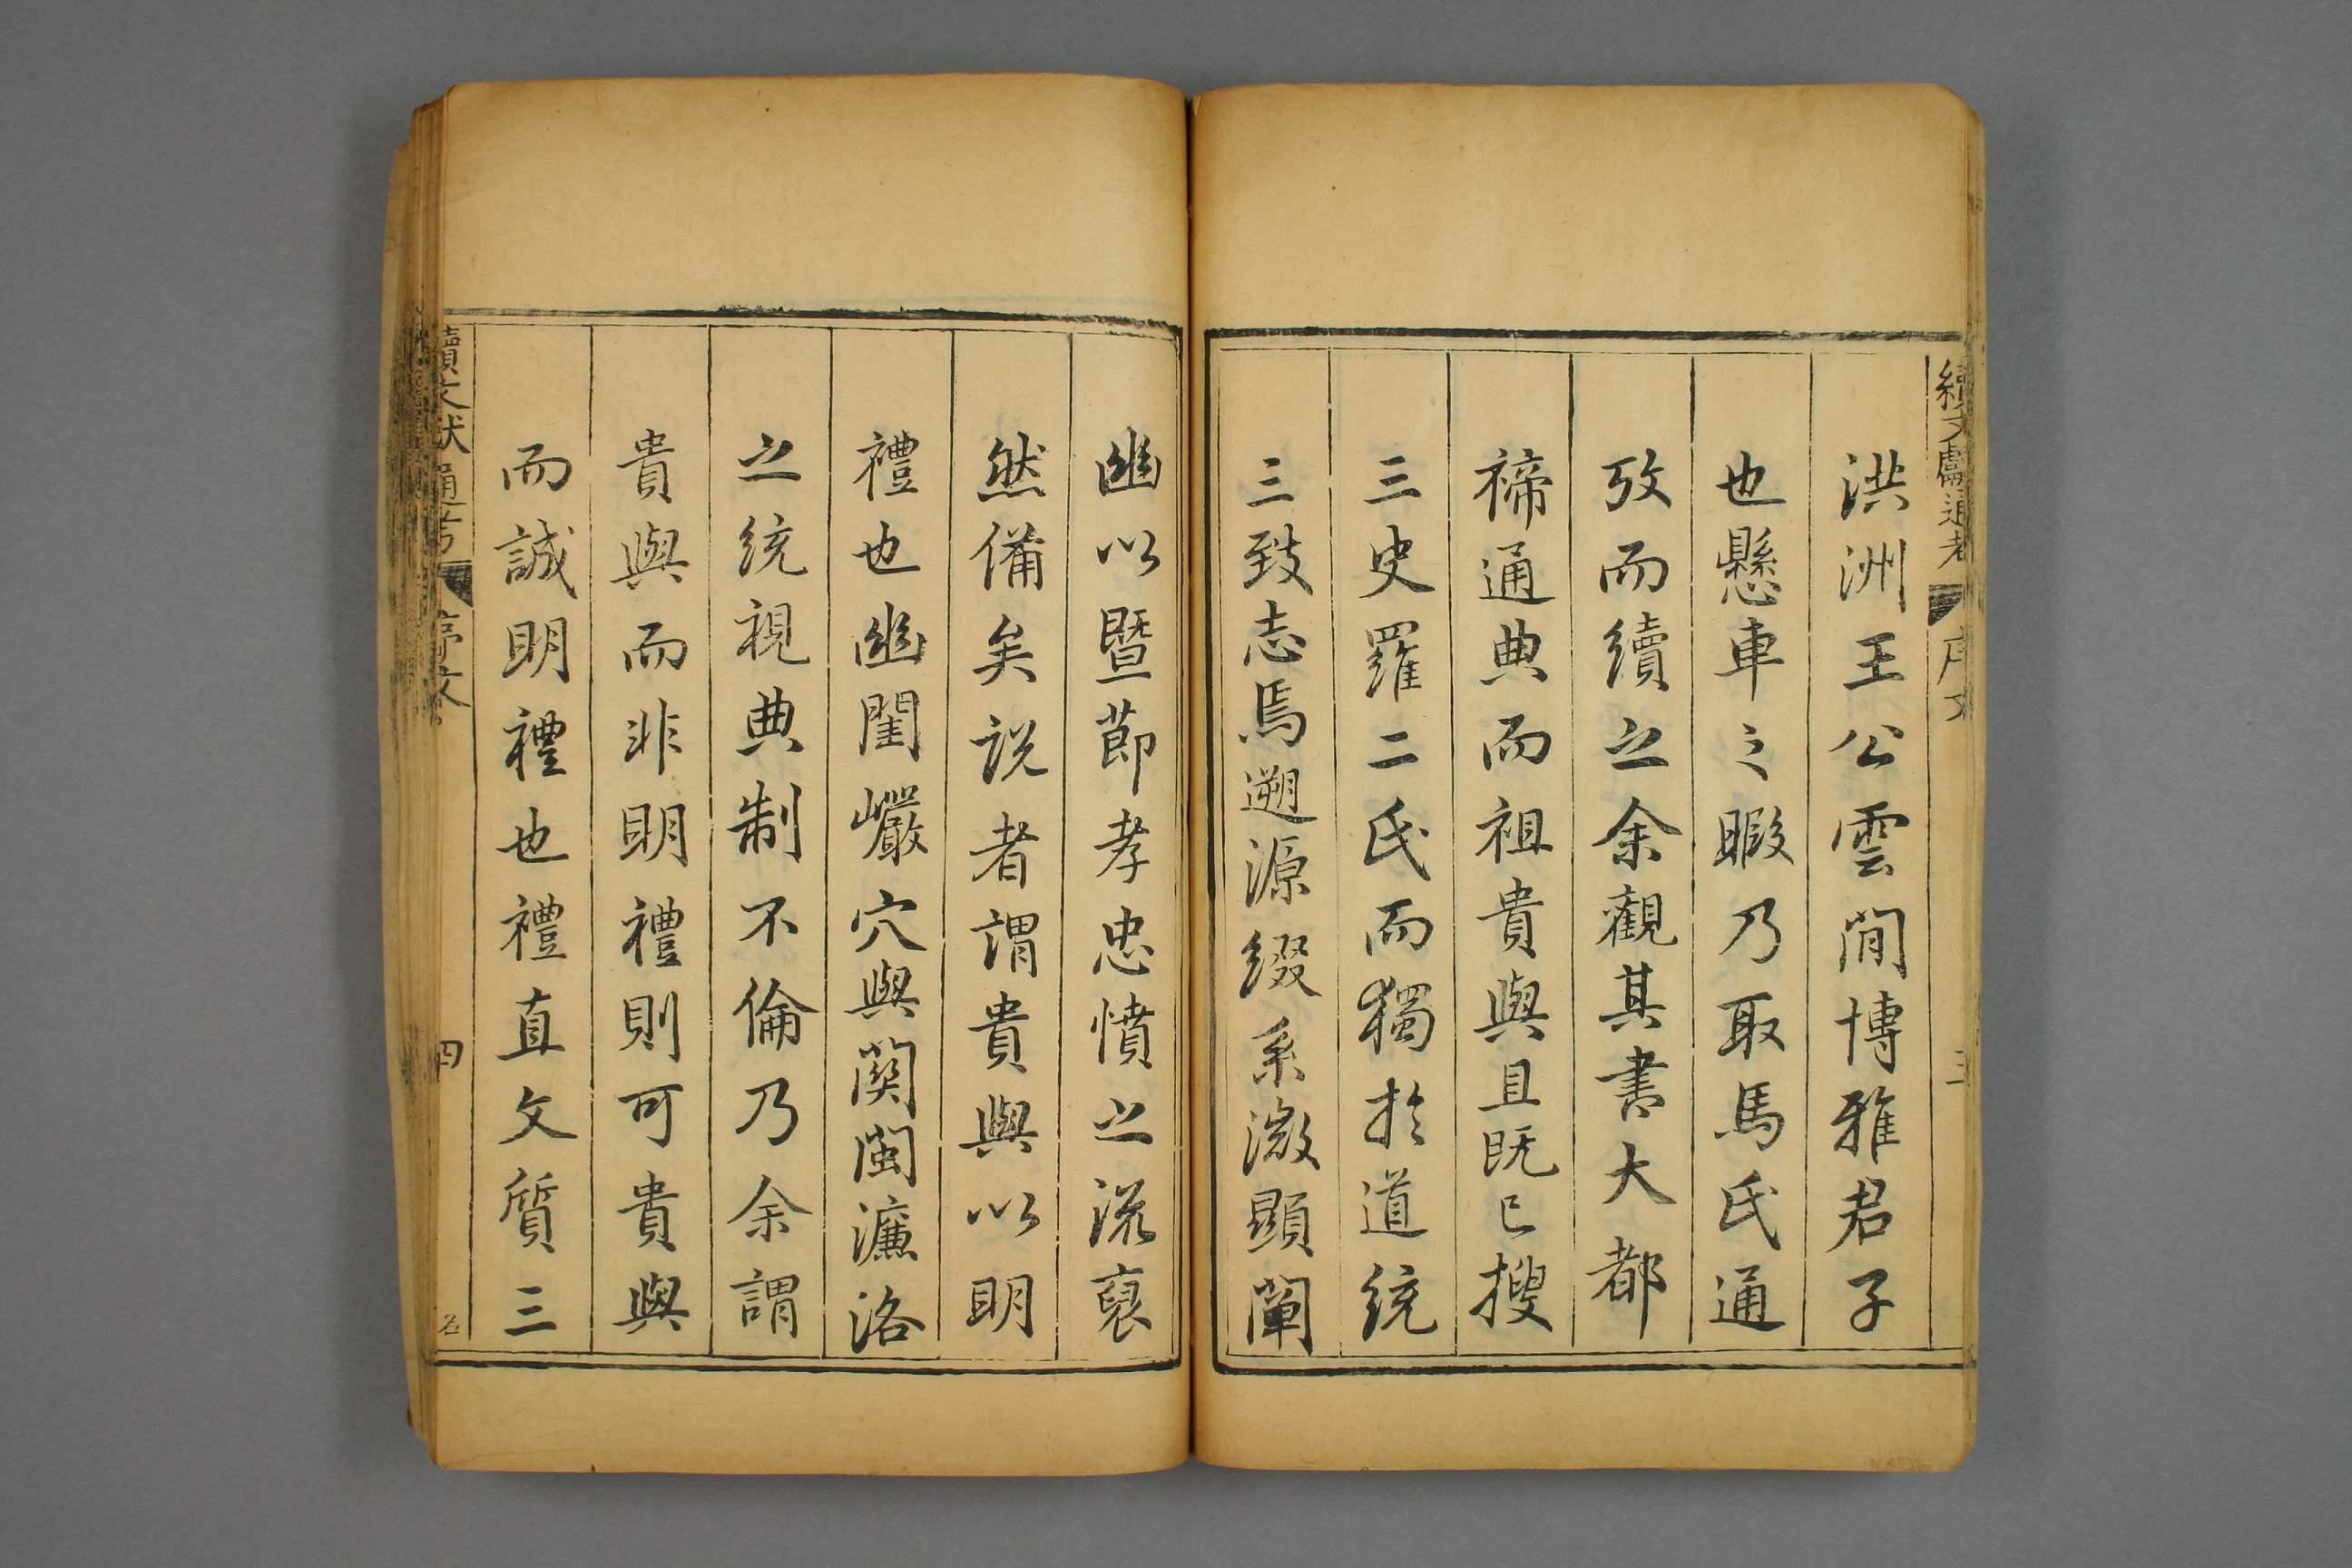 續文獻通考 序文 三
洪洲王公雲間博雅君子
也懸車之暇乃取馬氏通
攷而續之余觀其書大都
禘通典而祖貴與且既已搜
三史羅二氏而獨於道統
三致志焉遡源綴系微顯闡
幽以暨節孝忠憤之流裒
然備矣説者謂貴與以明
禮也幽闈巖穴與関閩濂洛
之統視典制不倫乃余謂
貴與而非明禮則可貴與
而誠明禮也禮直文質三
續文獻通考 序文 四